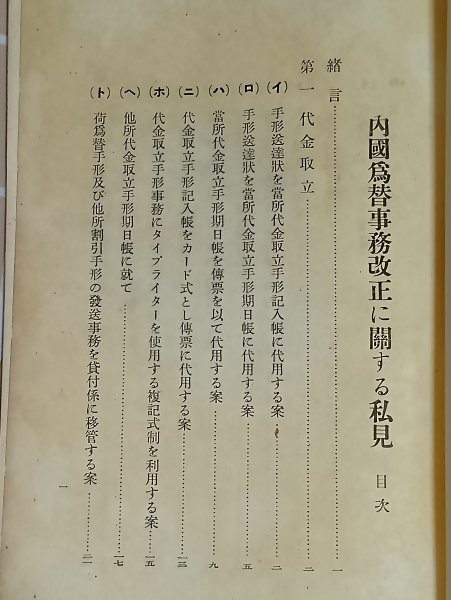 內國爲替事務改正に關する私見 目次
緒言……一
第一 代金取立……二
(イ) 手形送達狀を當所代金取立手形記入帳に代用する案……二
(ロ) 手形送達狀を當所代金取立手形期日帳に代用する案……五
(ハ) 當所代金取立手形期日帳を傳票を以て代用する案……九
(ニ) 代金取立手形記入帳をカード式とし傳票に代用する案……一三
(ホ) 代金取立手形事務にタイプライターを使用する複記式制を利用する案……一五
(ヘ) 他所代金取立手形期日帳に就て……一七
(ト) 荷爲替手形及び他所割引手形の發送事務を貸付係に移管する案……二一
一